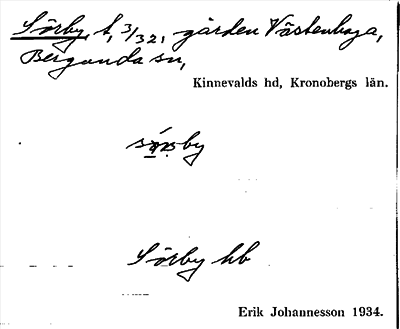 Sörby t, 3/32, gården Västenhaga,
Bergunda sn,
Kinnevalds hd, Kronobergs län.
Sörby hb
Erik Johannesson 1934.